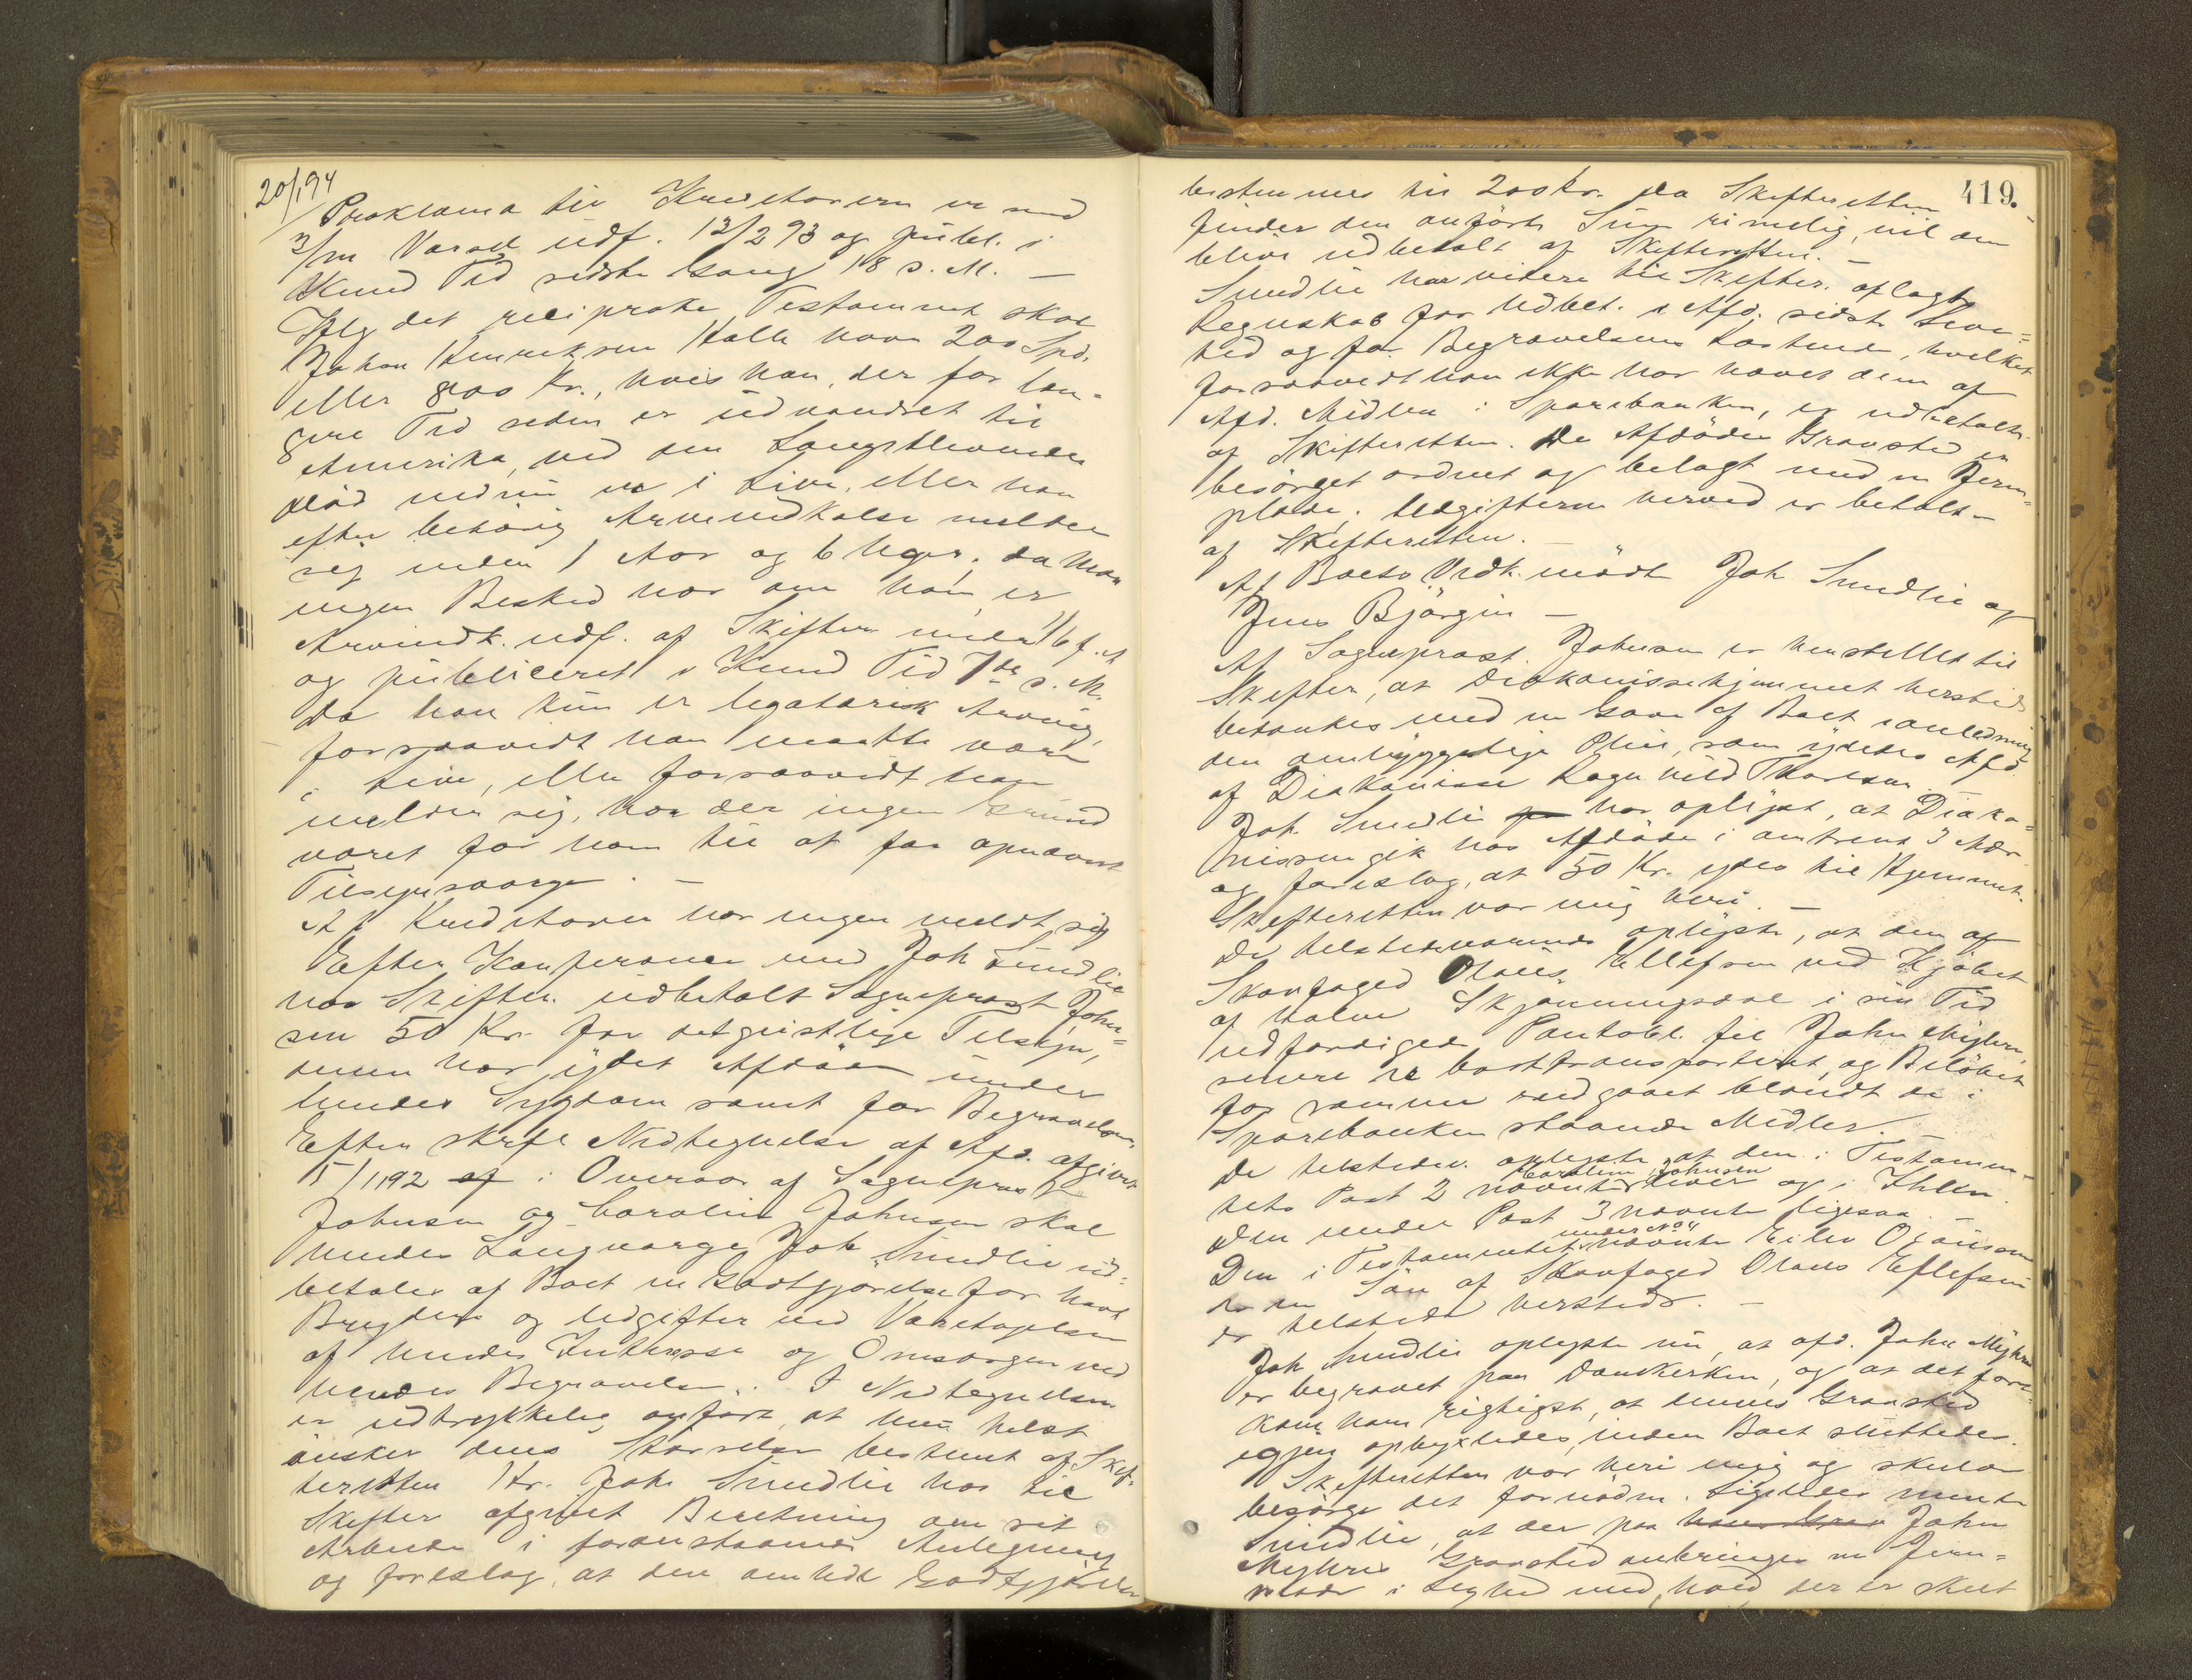 20/1 94
Proklama til Kreditorerne er med
3/m Varsel udf. 13/2 93 og publ. i
Kund Tid sidste Gang 18 s. M. –
Iflg det reciproke Testament skal
Johan Henriksen Kalle have 200 Spd.
eller 800 Kr., hvis han, der for læn-
gere Tid siden er udvandret til
Amerika, ved den Længstlevendes
Død endnu er i Live, eller han
efter behörig Arveindkaldelse melder
sig inden 1 Aar og 6 Uger; da man
ingen Besked har om ham, er
Arveindk. udf. af Skifter. under 1/6 f. A
og publiceret i Kund Tid 7de s. M.
Da han kun er legatarisk Arving,
forsaavidt han maatte være
i Live, eller forsaavidt han
melder sig, har der ingen Grund
været for ham til at faa opnævnt
Tilsynsværge. –
Af Kreditorer har ingen meldt sig
Efter Konferance med Joh Sundlie
har Skifter. udbetalt Sogneprest John-
sen 50 Kr. for det geistlige Tilsyn,
denne har ydet Afdöde under
hendes Sygdom samt for Begravelsen
Efter skrftl Nedtegnelse af Afd. afgivet
15/1 192 af i Overvær af Sogneprest
Johnsen og Caroline Johnsen skal
hendes Laugværge Joh Sundlie ud-
betales af Boet en Godtgjörelse for havt
Bryderi og Udgifter ved Varetagelsen
af hendes Interesse og Omsorgen ved
hendes Begravelse. I Nedtegnelsen
er udtrykkelig anfört, at hun helst
önsker dens Störrelse bestemt af Skif-
teretten. Hr. Joh. Sundlie har til
Skifter afgivet Beretning om sit
Arbeide i foranstaaende Anledning
og foreslog, at den omhdl Godtgjörelse
419.
bestemmes til 200 Kr. Da Skifteretten
finder den anförte Sum rimelig, vil den
blive udbetalt af Skifteretten. –
Sundlie har videre til Skifter. aflagt
Regnskab for Udbet. i Afd. sidste Leve-
tid og for Begravelsens Kostende, hvilket
forsaavidt han ikke har hævet dem af
Afd. Midler i Sparebanken, er udbetalt
af Skifteretten. De Afdödes Gravsted er
besörget ordnet og belagt med en Jern-
plade. Udgifterne herved er betalt –
af Skifteretten. –
Af Boets Vedk. mödte Joh Sundlie og
Jens Björgin –
Af Sogneprest Johnsen er henstillet til
Skifter, at Diakonissehjemmet hersteds
betænkes med en Gave af Boet i anledning
den omhyggelige Pleie, som ydedes Afd
af Diakonisse Ragnhild Thoresen.
Joh. Sundlie har oplyst, at Diako-
nissen gik hos Afdöde i omtrent 3 Mdr
og foreslog, at 50 Kr. ydes til Hjemmet.
Skifteretten var enig heri. –
De tilstedeværende oplyste, at den af
Skovfoged Olaus Ellefsen ved Kjöbet
af halve Skjönningsdal i sin Tid
udfærdigede Pantobl. til John Myhre,
senere er borttransporteret, og Belöbet
for samme indgaaet blandt de i
Sparebanken staaende Midler.
De tilstedev. oplyste at den i Testamen-
tets Post 2 nævnte Caroline Johnsen lever og i Ihlen.
Den under Post 3 nævnte ligesaa –
Den i Testamentet under No 4 nævnte Eilev Olausen
er en Sön af Skovfoged Olaus Ellefsen
er tilstede hersteds. –
Joh Sundlie oplyste nu, at afd. John Myhre
er begravet paa Domkirken, og at det fore-
kom ham rigtigst, at hans Gravsted
igjen opbyttedes, inden Boet sluttedes.
Skifteretten var heri enig og skulde
besörge det fornödne. Ligeledes mente
Sundlie, at der paa hans Grav John
Myhres Gravsted anbringes en Jern-
plade i Lighed med, hvad der er skeet